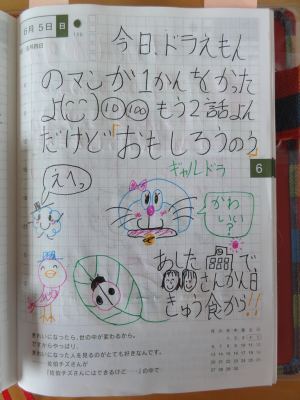 6月 5日 日
今日、ドラえもん
のマンガ1かんをかった
よ もう2話よん
だけど「おもしろうのう」
ギャルドラ
6
えへっ
かわいい?
あした
で
さんかん日
きゅう食かう!!
きれいになったら、世の中が変わるから。
ですからやっぱり、
きれいになった人を見るのがとても好きなんです。
佐伯チズさんが
『佐伯チズさんにはできるけど……』の中で